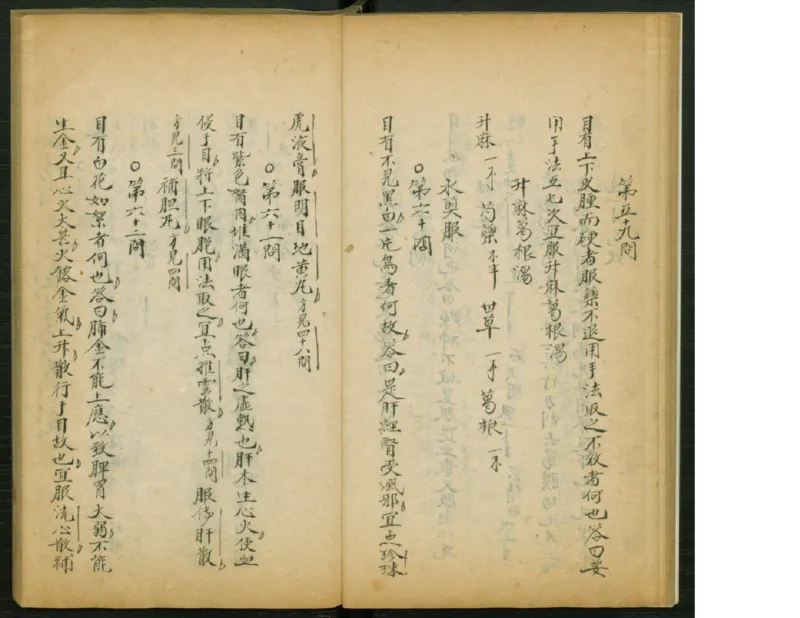 第五十九問
目有上下皮腫而硬者服藥不退用手法取之不效者何也答曰要
用手法五七次宜服升麻葛根湯
升麻葛根湯
升麻 一不 芍藥 不半 甘草 一不半 葛根 一不
水煎服
○第六十問
目有不見黑白一片烏者何故答曰是肝經腎受風邪宜点珍珠
虎液膏服明目地黃丸方見四十八問
○第六十一問
目有紫色翳肉堆滿眼者何也答曰肝之虛熱也肝木生心火使血
侵于目將上下眼胞用法取之宜点推雲散方見十四問服傳肝散
方見三問 補胆丸方見四問
○第六十二問
目有白花如絮者何也答曰肺金不能上應以致脾胃大弱不能
生金又且心火大甚火鎔金氣上升散行于目故也宜服洗心散補